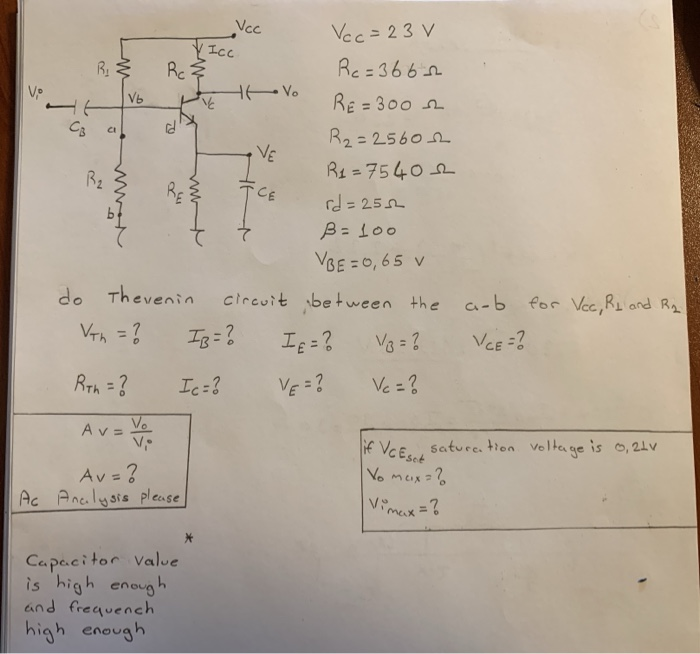 Vcc
Icc
R1
Rc
Vi
Vb
Vc
Vo
CB
a
rd
VE
R2
RE
CE
b
Vcc = 23 V
Rc = 366 Ω
RE = 300 Ω
R2 = 2560 Ω
R1 = 7540 Ω
rd = 25 Ω
β = 100
VBE = 0,65 v
do Thevenin circuit between the a-b for Vcc, R1 and R2
VTh = ? IB = ? IE = ? VB = ? VCE = ?
RTh = ? Ic = ? VE = ? Vc = ?
Av = Vo/Vi
Av = ?
Ac Analysis please
if VCEsat saturation voltage is 0,21V
Vo max = ?
Vi max = ?
*
Capacitor value
is high enough
and frequench
high enough